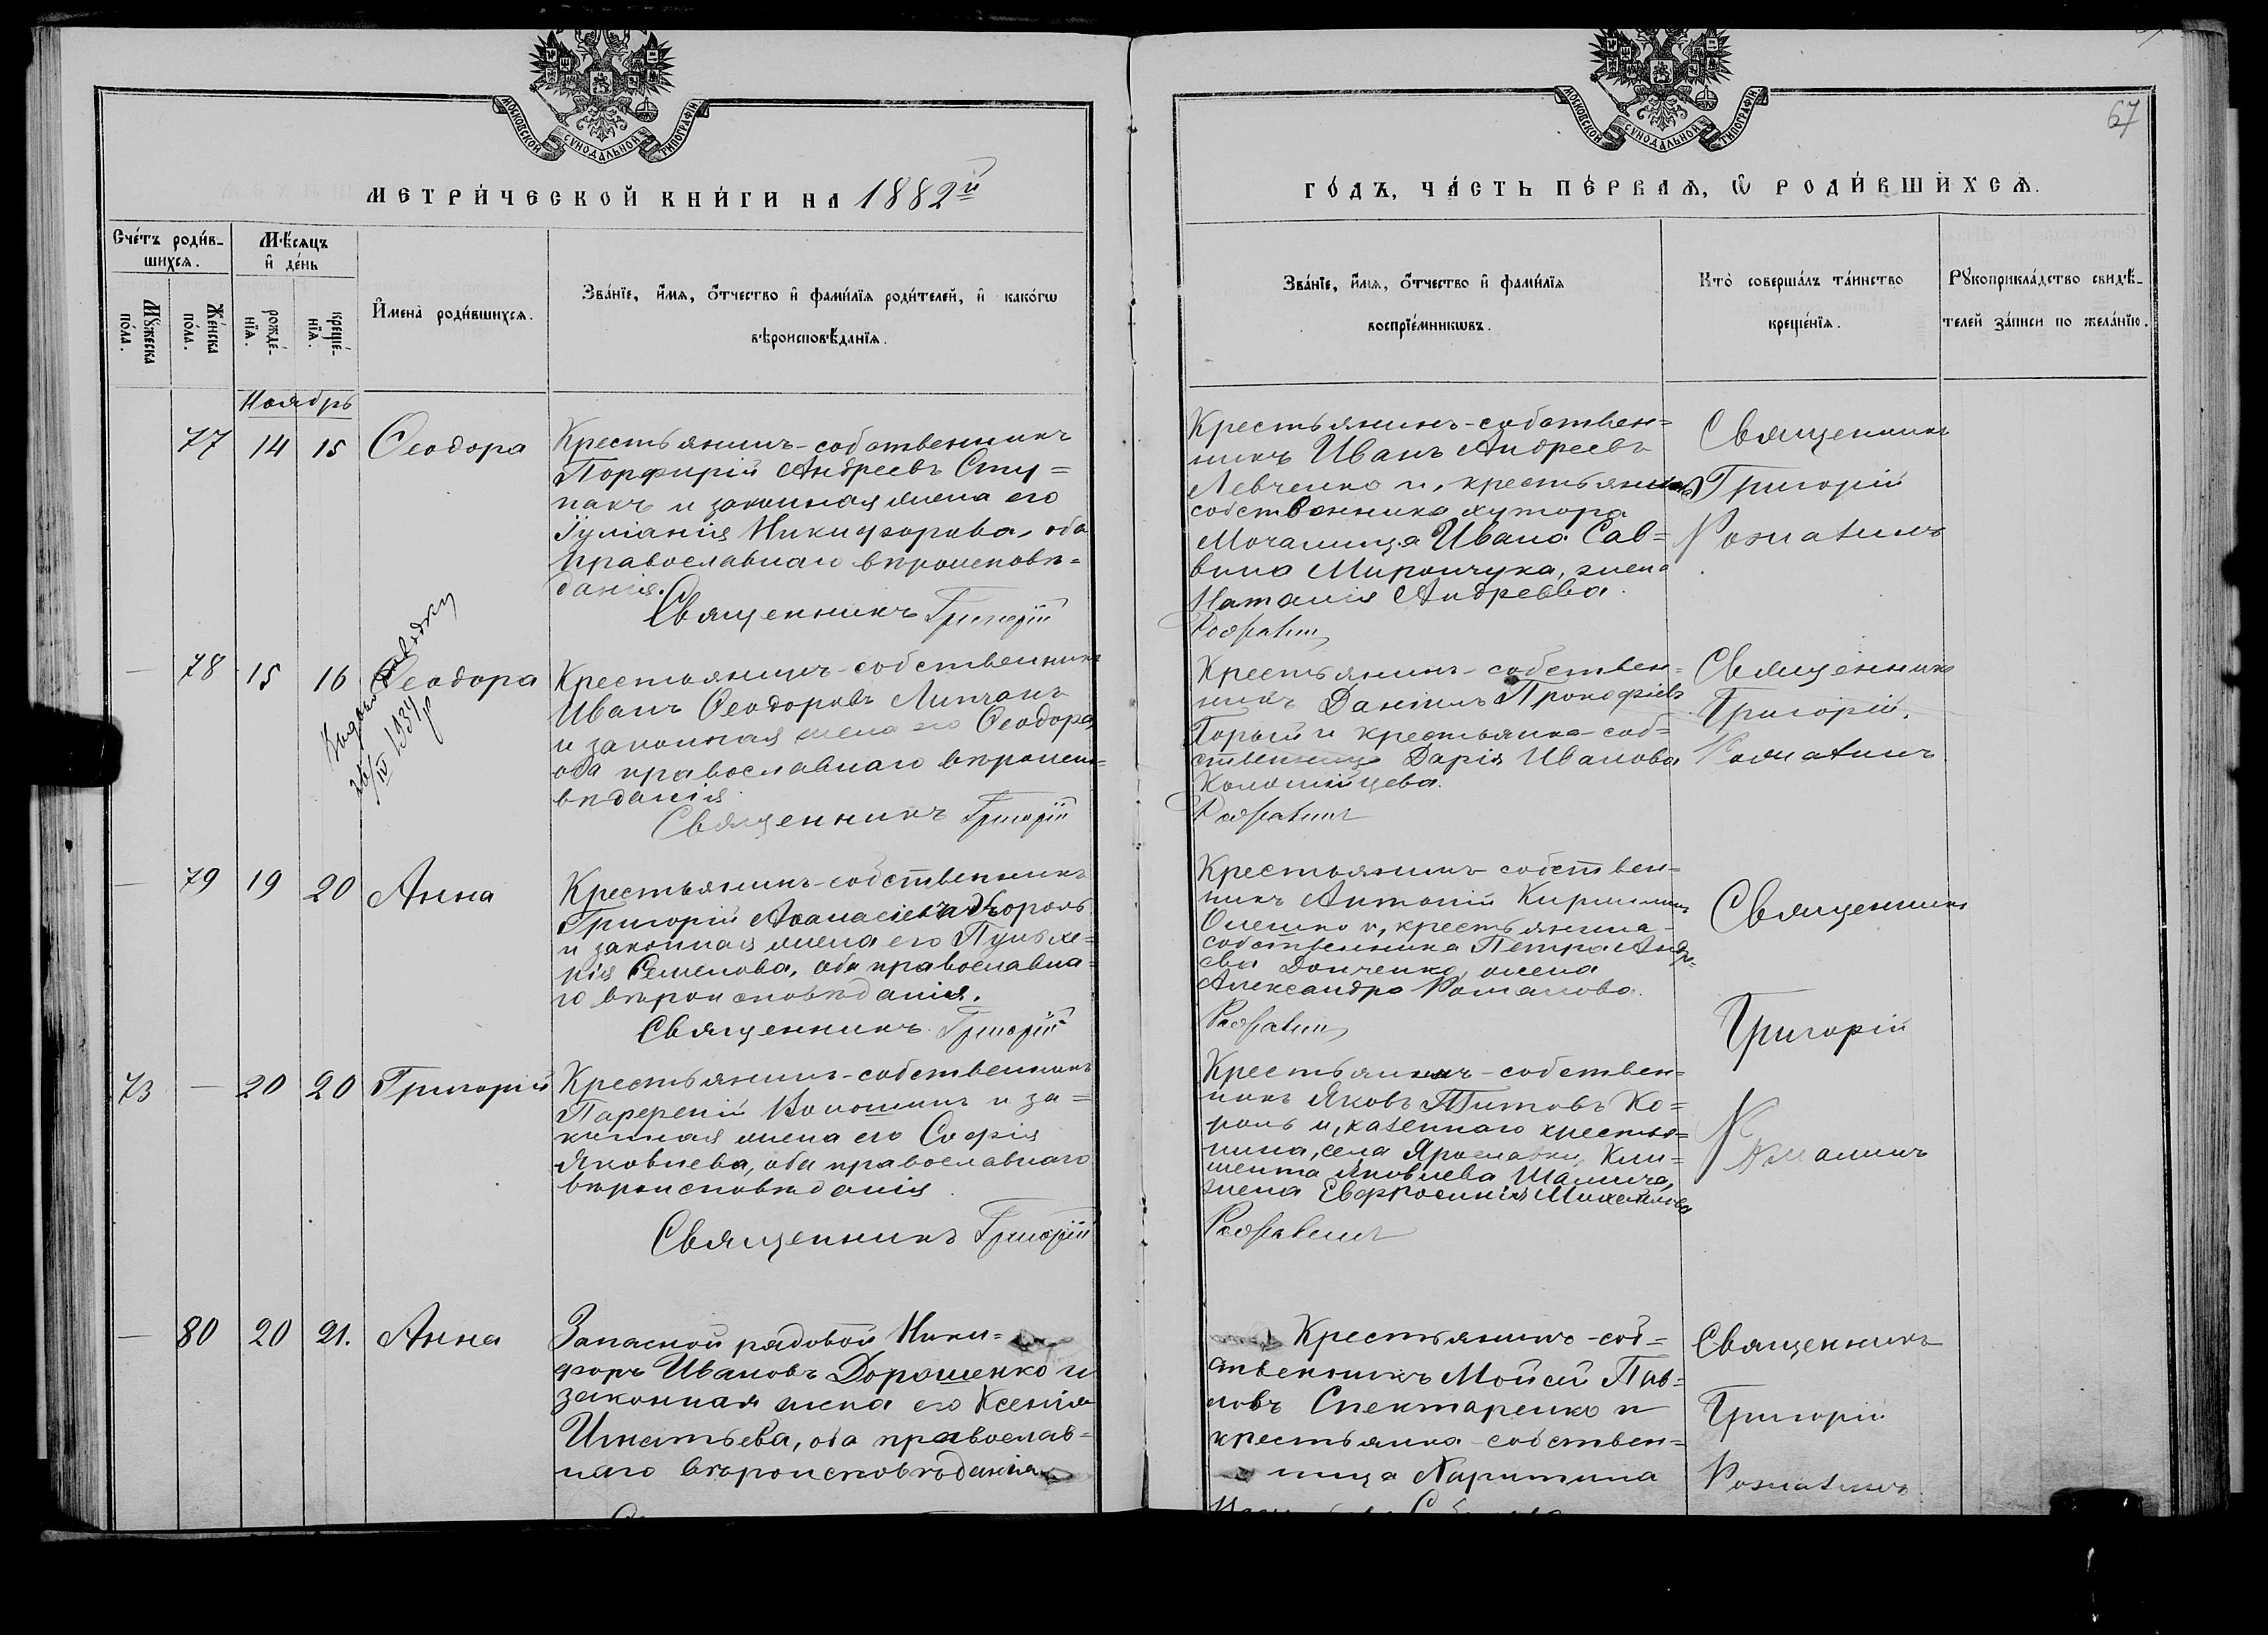 МОСКОВСКОЙ СѴНОДАЛЬНОЙ ТИПОГРАФІИ
МЕТРИ́ЧЕСКОЙ КНИ́ГИ НА 1882й
Сче́тъ роди́в-
шихсѧ.
М҃ѣсѧцъ
и҆ де́нь
Мꙋ́жеска
по́ла.
Же́нска
по́ла.
рожде́-
нїѧ.
креще́-
нїѧ.
И҆мена̀ роди́вшихсѧ.
Зва́нїе, и҆́мѧ, ѻ҆́тчество и҆ фами́лїѧ роди́телей, и҆ како́гѡ
вѣроисповѣ́данїѧ.
Ноябрь
77 14 15 Ѳеодора
Крестьянинъ-собственникъ
Порфирій Андреевъ Сту=
пакъ и законная жена его
Іуліанія Никифорова, оба
православнаго вѣроисповѣ=
данія.
Священникъ Григорій
— 78 15 16 Ѳеодора
26/IV 1934 р
Крестьянинъ-собственникъ
Иванъ Ѳеодоровъ Литчанъ
и законная жена его Ѳеодора,
оба православнаго вѣроиспо=
вѣданія
Священникъ Григорій
— 79 19 20 Анна
Крестьянинъ-собственникъ
Григорій Аѳанасіевъ Король
и законная жена его Пульхе=
рія Семенова, оба православна=
го вѣроисповѣданія.
Священникъ Григорій
73 — 20 20 Григорій
Крестьянинъ-собственникъ
Парѳеній Волошинъ и за=
конная жена его Софія
Яковлева, оба православнаго
вѣроисповѣданія.
Священникъ Григорій
— 80 20 21. Анна
Запасной рядовой Ники=
форъ Ивановъ Дорошенко и
законная жена его Ксенія
Игнатьева, оба православ=
наго вѣроисповѣданія
МОСКОВСКОЙ СѴНОДАЛЬНОЙ ТИПОГРАФІИ
67
ГО́ДЪ, ЧА́СТЬ ПЕ́РВАѦ, Ѡ҆ РОДИ́ВШИХСѦ.
Зва́нїе, и҆́мѧ, ѻ҆́тчество и҆ фами́лїѧ
воспрїе́мникѡвъ.
Кто̀ соверша́лъ та́инство
креще́нїѧ.
Рꙋкоприкла́дство свидѣ́-
телей за́писи по жела́нїю.
Крестьянинъ-собствен=
никъ Иванъ Андреевъ
Левченко и, крестьянина
собственника хутора
Мочалища Ивана Сав=
вина Мирончука, жена
Наталія Андреева.
Священникъ
Григорій
Крестьянинъ-собствен=
никъ Даніилъ Прокофіевъ
Горый и крестьянка-соб=
ственница Дарія Иванова
Коломійцева.
Священникъ
Григорій
Крестьянинъ-собствен=
никъ Антоній Кирилловъ
Олешко и, крестьянина-
собственника Петра Андре=
ева Донченко, жена
Александра Романова.
Священникъ
Григорій
Крестьянинъ-собствен=
никъ Яковъ Титовъ Ко=
роль и, казеннаго крестья=
нина, села Ярославки, Кли=
мента Яковлева Шамича,
жена Евфросинія Михайлова
Крестьянинъ-соб=
ственникъ Мойсей Пав=
ловъ Спектаренко и
крестьянка-собствен=
ница Харитина
Священникъ
Григорій